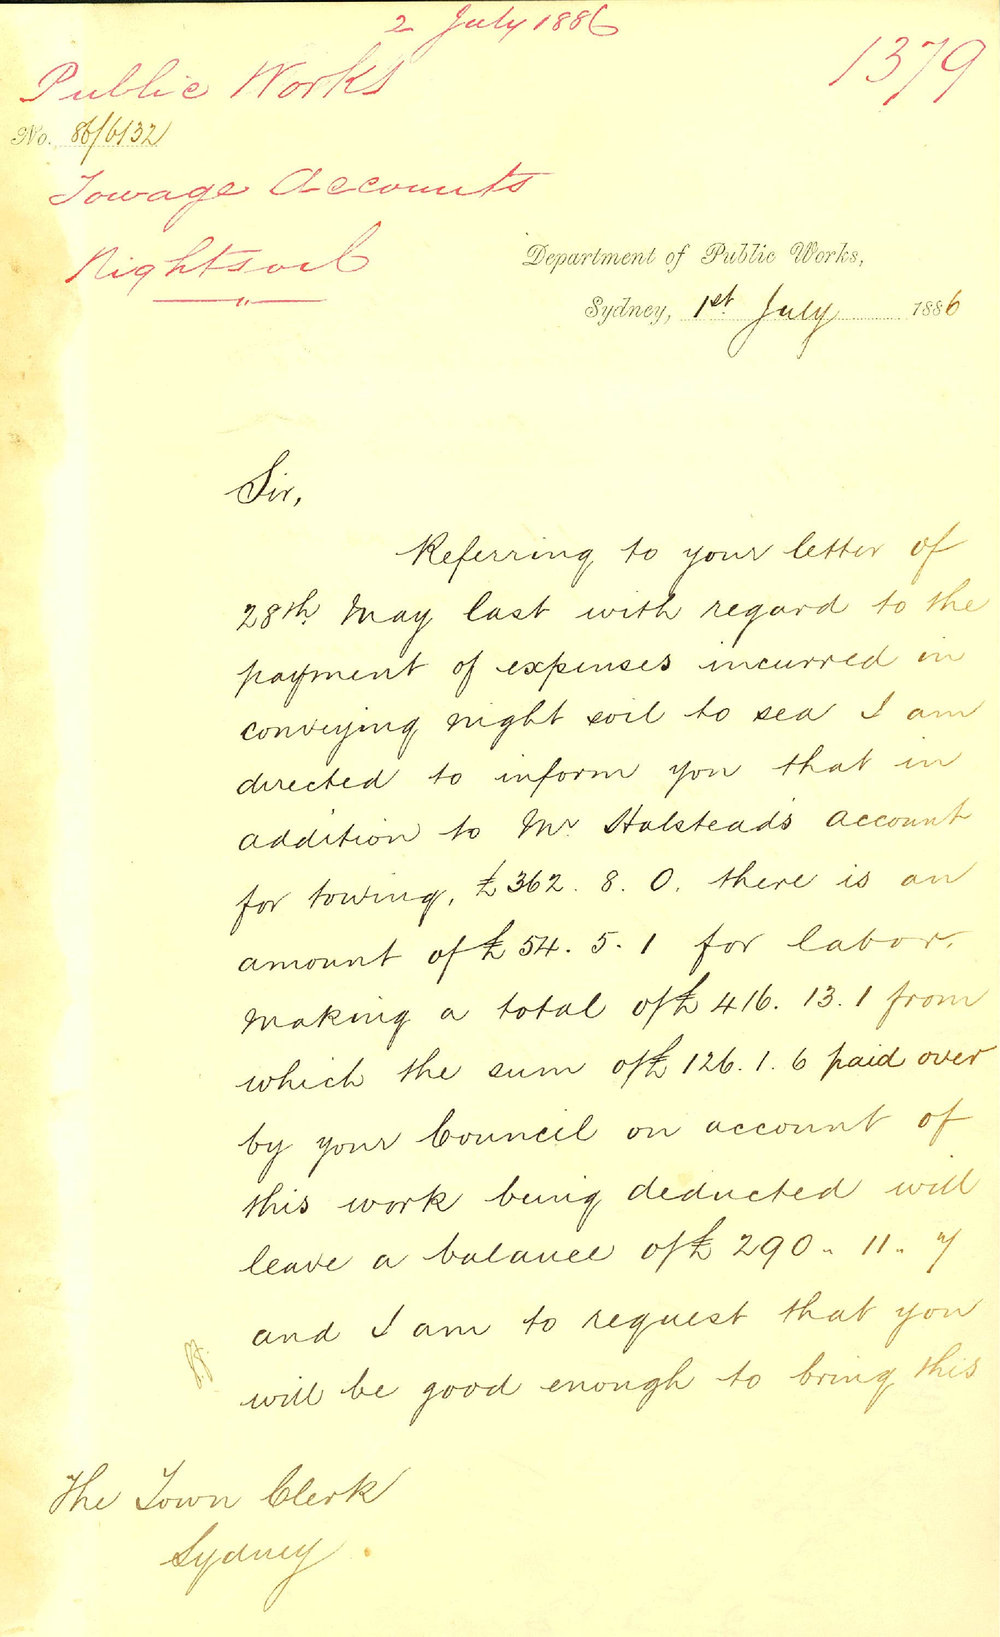 2 July 1886
1379
Public Works
No. 86/6132
Towage Accounts
Nightsoil
Department of Public Works,
Sydney, 1st July 1886
Sir,
Referring to your letter of
28th May last with regard to the
payment of expenses incurred in
conveying night soil to sea I am
directed to inform you that in
addition to Mr Halstead's account
for towing, £362. 8. 0. there is an
amount of £54. 5. 1 for labor.
Making a total of £416. 13. 1 from
which the sum of £126. 1. 6 paid over
by your Council on account of
this work being deducted will
leave a balance of £290. 11. 7
and I am to request that you
will be good enough to bring this
The Town Clerk
Sydney.